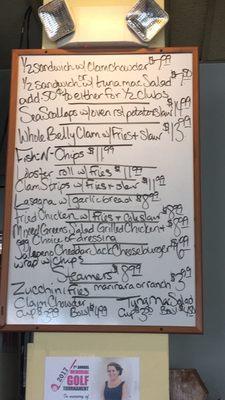 ½ Sandwich w/Clam Chowder $7.99
½ Sandwich w/ Tuna Mac Salad
or
add 50¢ to either for ½ Clubs
Sea Scallops w/oven rst potato+slaw
Whole Belly Clam w/Fries+Slaw
Fish-N-Chips $11.99
Lobster roll w/ Fries $11.99
Clam Strips w/Fries+slaw $11.99
Lasagna w/garlic bread $8.99
Fried Chicken w/Fries+Coleslaw $8.99
Mixed Greens Salad Grilled Chicken+
egg Choice of dressing
Jalapeno Cheddar Jack Cheeseburger
wrap w/Chips
Steamers $8.99
Zucchini Fries marinara or ranch
Clam Chowder Tuna mac Salad
Cup $3.99 Bowl $4.99 Cup $3.99 Bowl
2017
MEMORIAL
GOLF
TOURNAMENT
In memory of